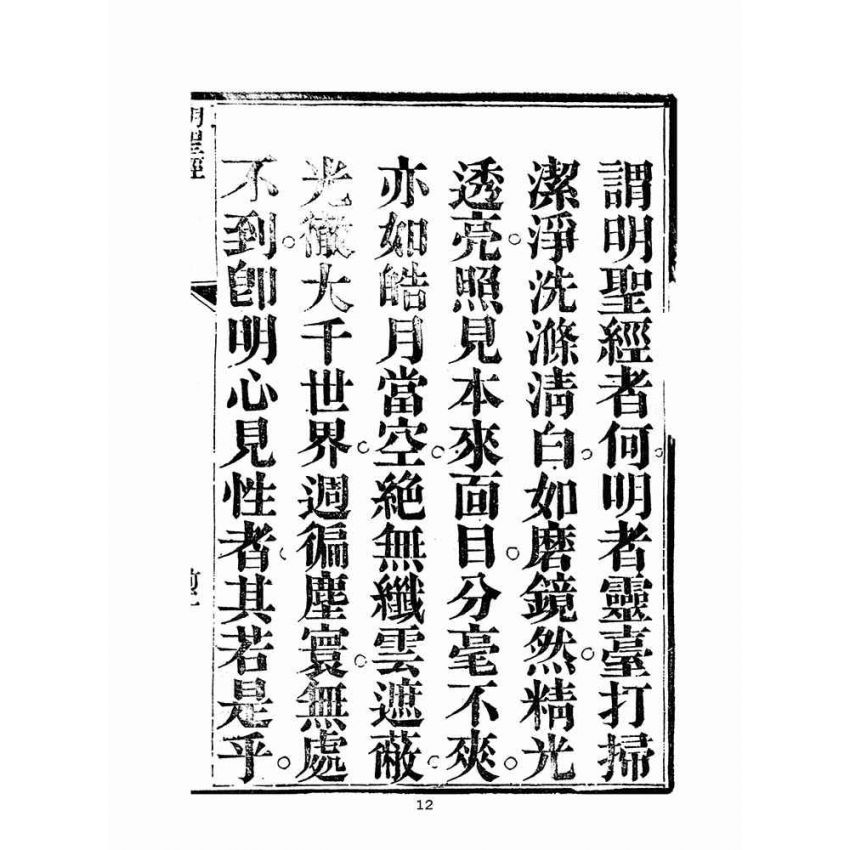 謂明聖經者何。明者靈臺打掃
潔淨洗滌淸白。如磨鏡然。精光
透亮。照見本來面目。分毫不爽。
亦如皓月當空。絕無纖雲遮蔽。
光徹大千世界。週徧塵寰。無處
不到。卽明心見性者。其若是乎。
明聖經
12